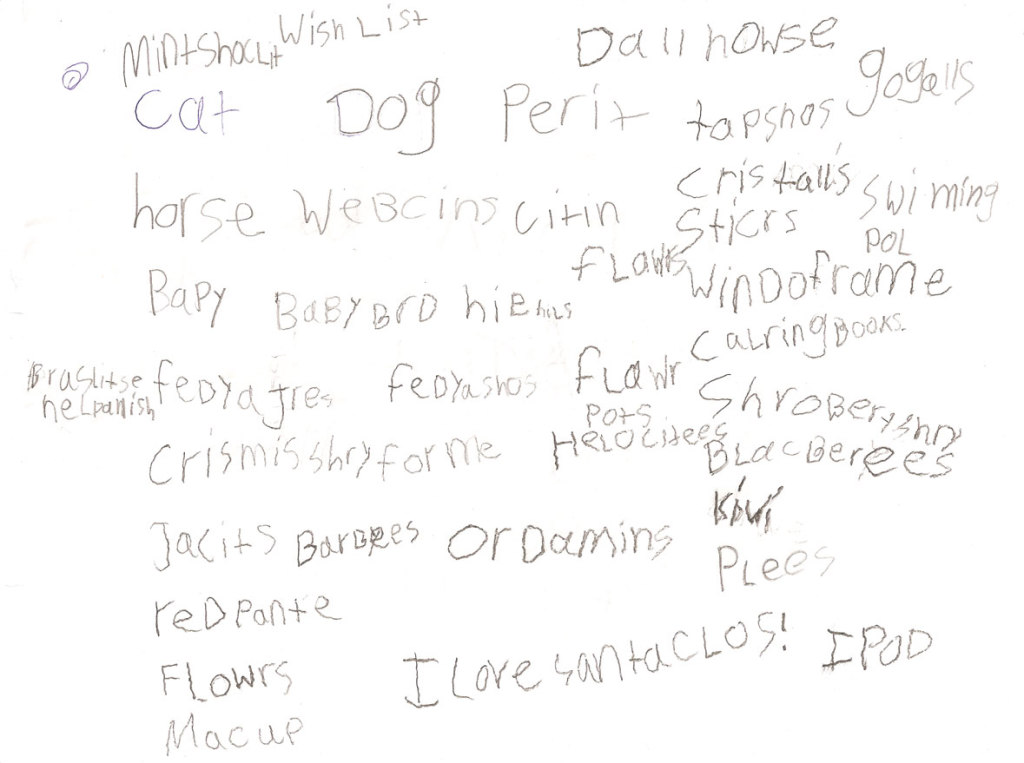 Wish List
MintShocLit
Dall howse
gogalls
Cat Dog Perit tapshos
cristalls
horse WeBcins citin Sticrs swiming POL
FLawrs
Bapy BaByBrD hiEhils WinDoframe
caLringBOOKS.
Braslitse feDyajres feDyashos FLawr POTS
heLpanish
ShroBeryshry
crismisshry for Me HeLOCitees BLacBerees
Kiwi
Jacits BarBees OrDamins PLees
reDpante
FLowrs I Love santa CLOS! I POD
Macup